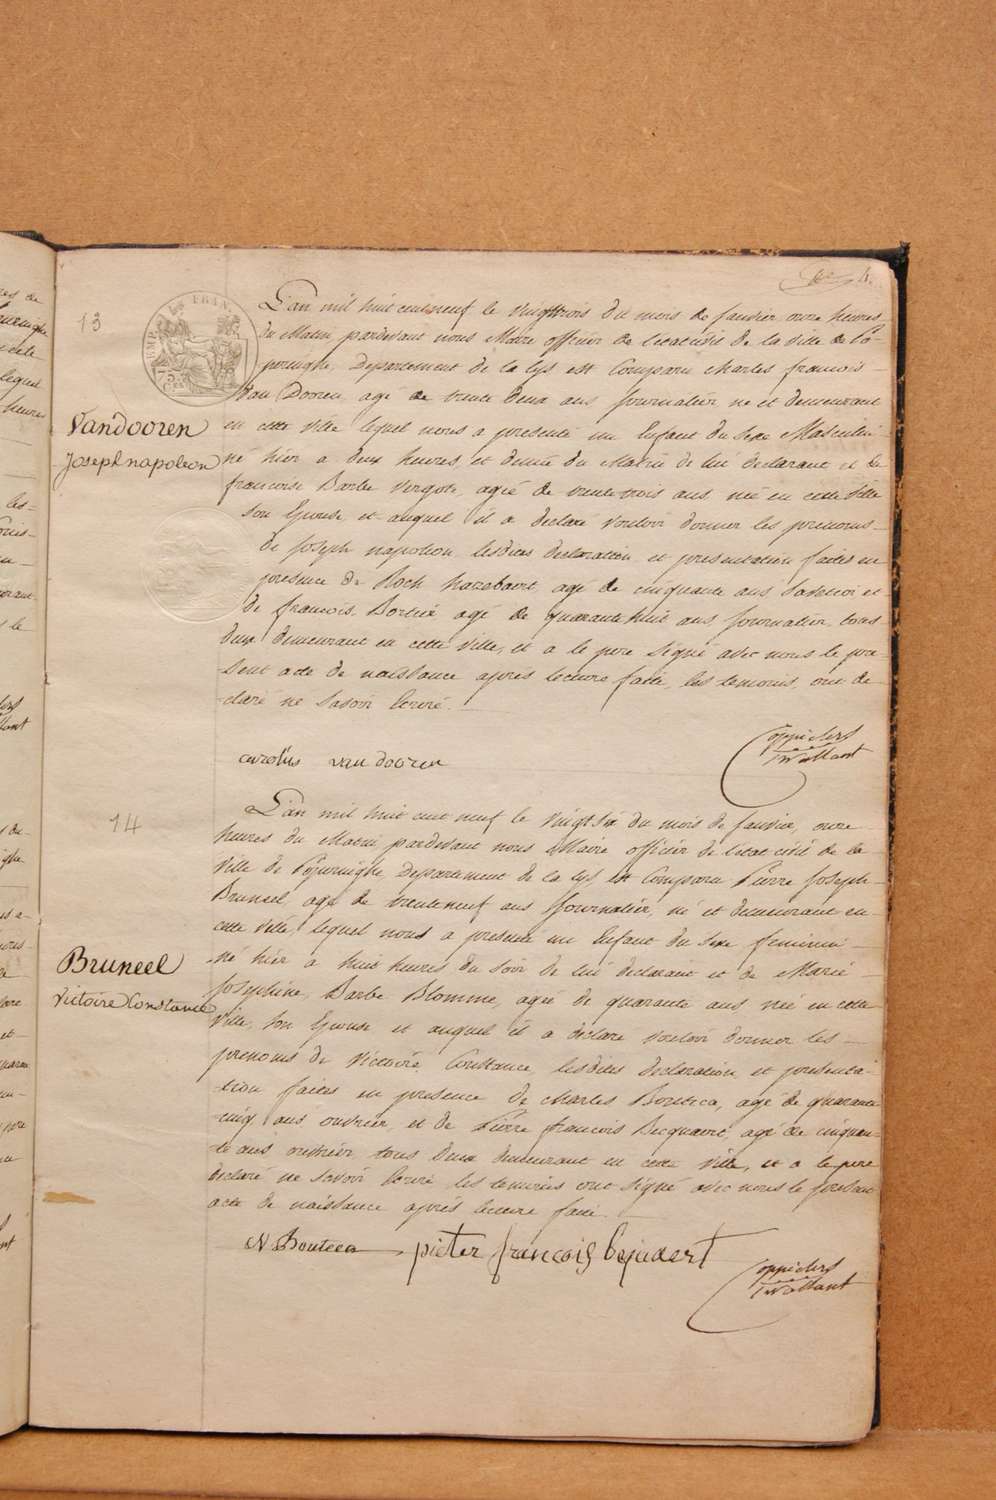 13
L'an mil huit cent neuf le vingttrois du mois de janvier onze heures
du Matin pardevant nous Maire officier de l'etat civil de la ville de Po-
peringhe, Departement de la Lys est Comparu Charles francois
Van Dooren, agé de trente deux ans journalier né et demeurant
en cette ville lequel nous a presenté un Enfant du sexe Masculin
Vandooren
Joseph napoleon
né hier a deux heures, et demie du Matin de lui declarant et de
francoise Barbe Vergote, agée de trente trois ans née en cette ville
son Epouse et auquel il a declaré vouloir donner les prenoms
de Joseph napoleon lesdites declaration et presentation faites en
presence de Roch hazebaert agé de cinquante ans et
de francois agé de quarante huit ans journalier, tous
deux demeurant en cette ville, et a le pere Signé avec nous le pre-
sent acte de naissance après lecture faite, les temoins, ont de-
claré ne savoir Ecrire.
carolus van dooren
14
L'an mil huit cent neuf le vingt six du mois de janvier, onze
heures du Matin pardevant nous Maire officier de l'etat civil de la
ville de Poperinghe Departement de la Lys est Comparu Pierre Joseph
Bruneel, agé de trente neuf ans journalier, né et demeurant en
cette ville, lequel nous a presenté un Enfant du sexe feminin
Bruneel
Victoire Constance
né hier a huit heures du soir de lui declarant et de Marie
Josephine, Barbe Blomme, agée de quarante ans née en cette
ville, son Epouse et auquel il a declaré vouloir donner les
prenoms de Victoire Constance lesdites declaration et presenta-
tion faites en presence de Charles Bouteca, agé de quarante
cinq ans ouvrier, et de Pierre francois Becquaert, agé de cinquan-
te ans ouvrier tous deux demeurant en cette ville, et a le pere
declaré ne savoir Ecrire les temoins ont signé avec nous le present
acte de naissance après lecture faite
Bouteca pieter francois